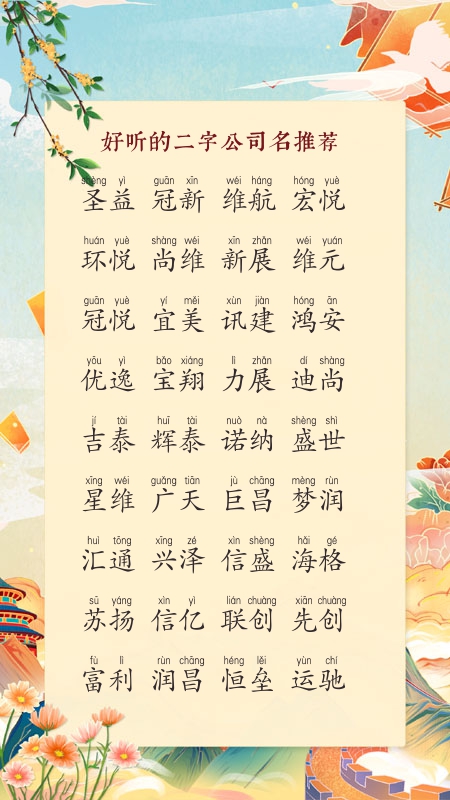 好听的二字公司名推荐
shèng yì guān xīn wéi háng hóng yuè
圣益 冠新 维航 宏悦
huán yuè shàng wéi xīn zhǎn wéi yuán
环悦 尚维 新展 维元
guān yuè yí měi xùn jiàn hóng ān
冠悦 宜美 讯建 鸿安
yōu yì bǎo xiáng lì zhǎn dí shàng
优逸 宝翔 力展 迪尚
jí tài huī tài nuò nà shèng shì
吉泰 辉泰 诺纳 盛世
xīng wéi guǎng tiān jù chāng mèng rùn
星维 广天 巨昌 梦润
huì tōng xīng zé xìn shèng hǎi gé
汇通 兴泽 信盛 海格
sū yáng xìn yì lián chuàng xiān chuàng
苏扬 信亿 联创 先创
fù lì rùn chāng héng lěi yùn chí
富利 润昌 恒垒 运驰